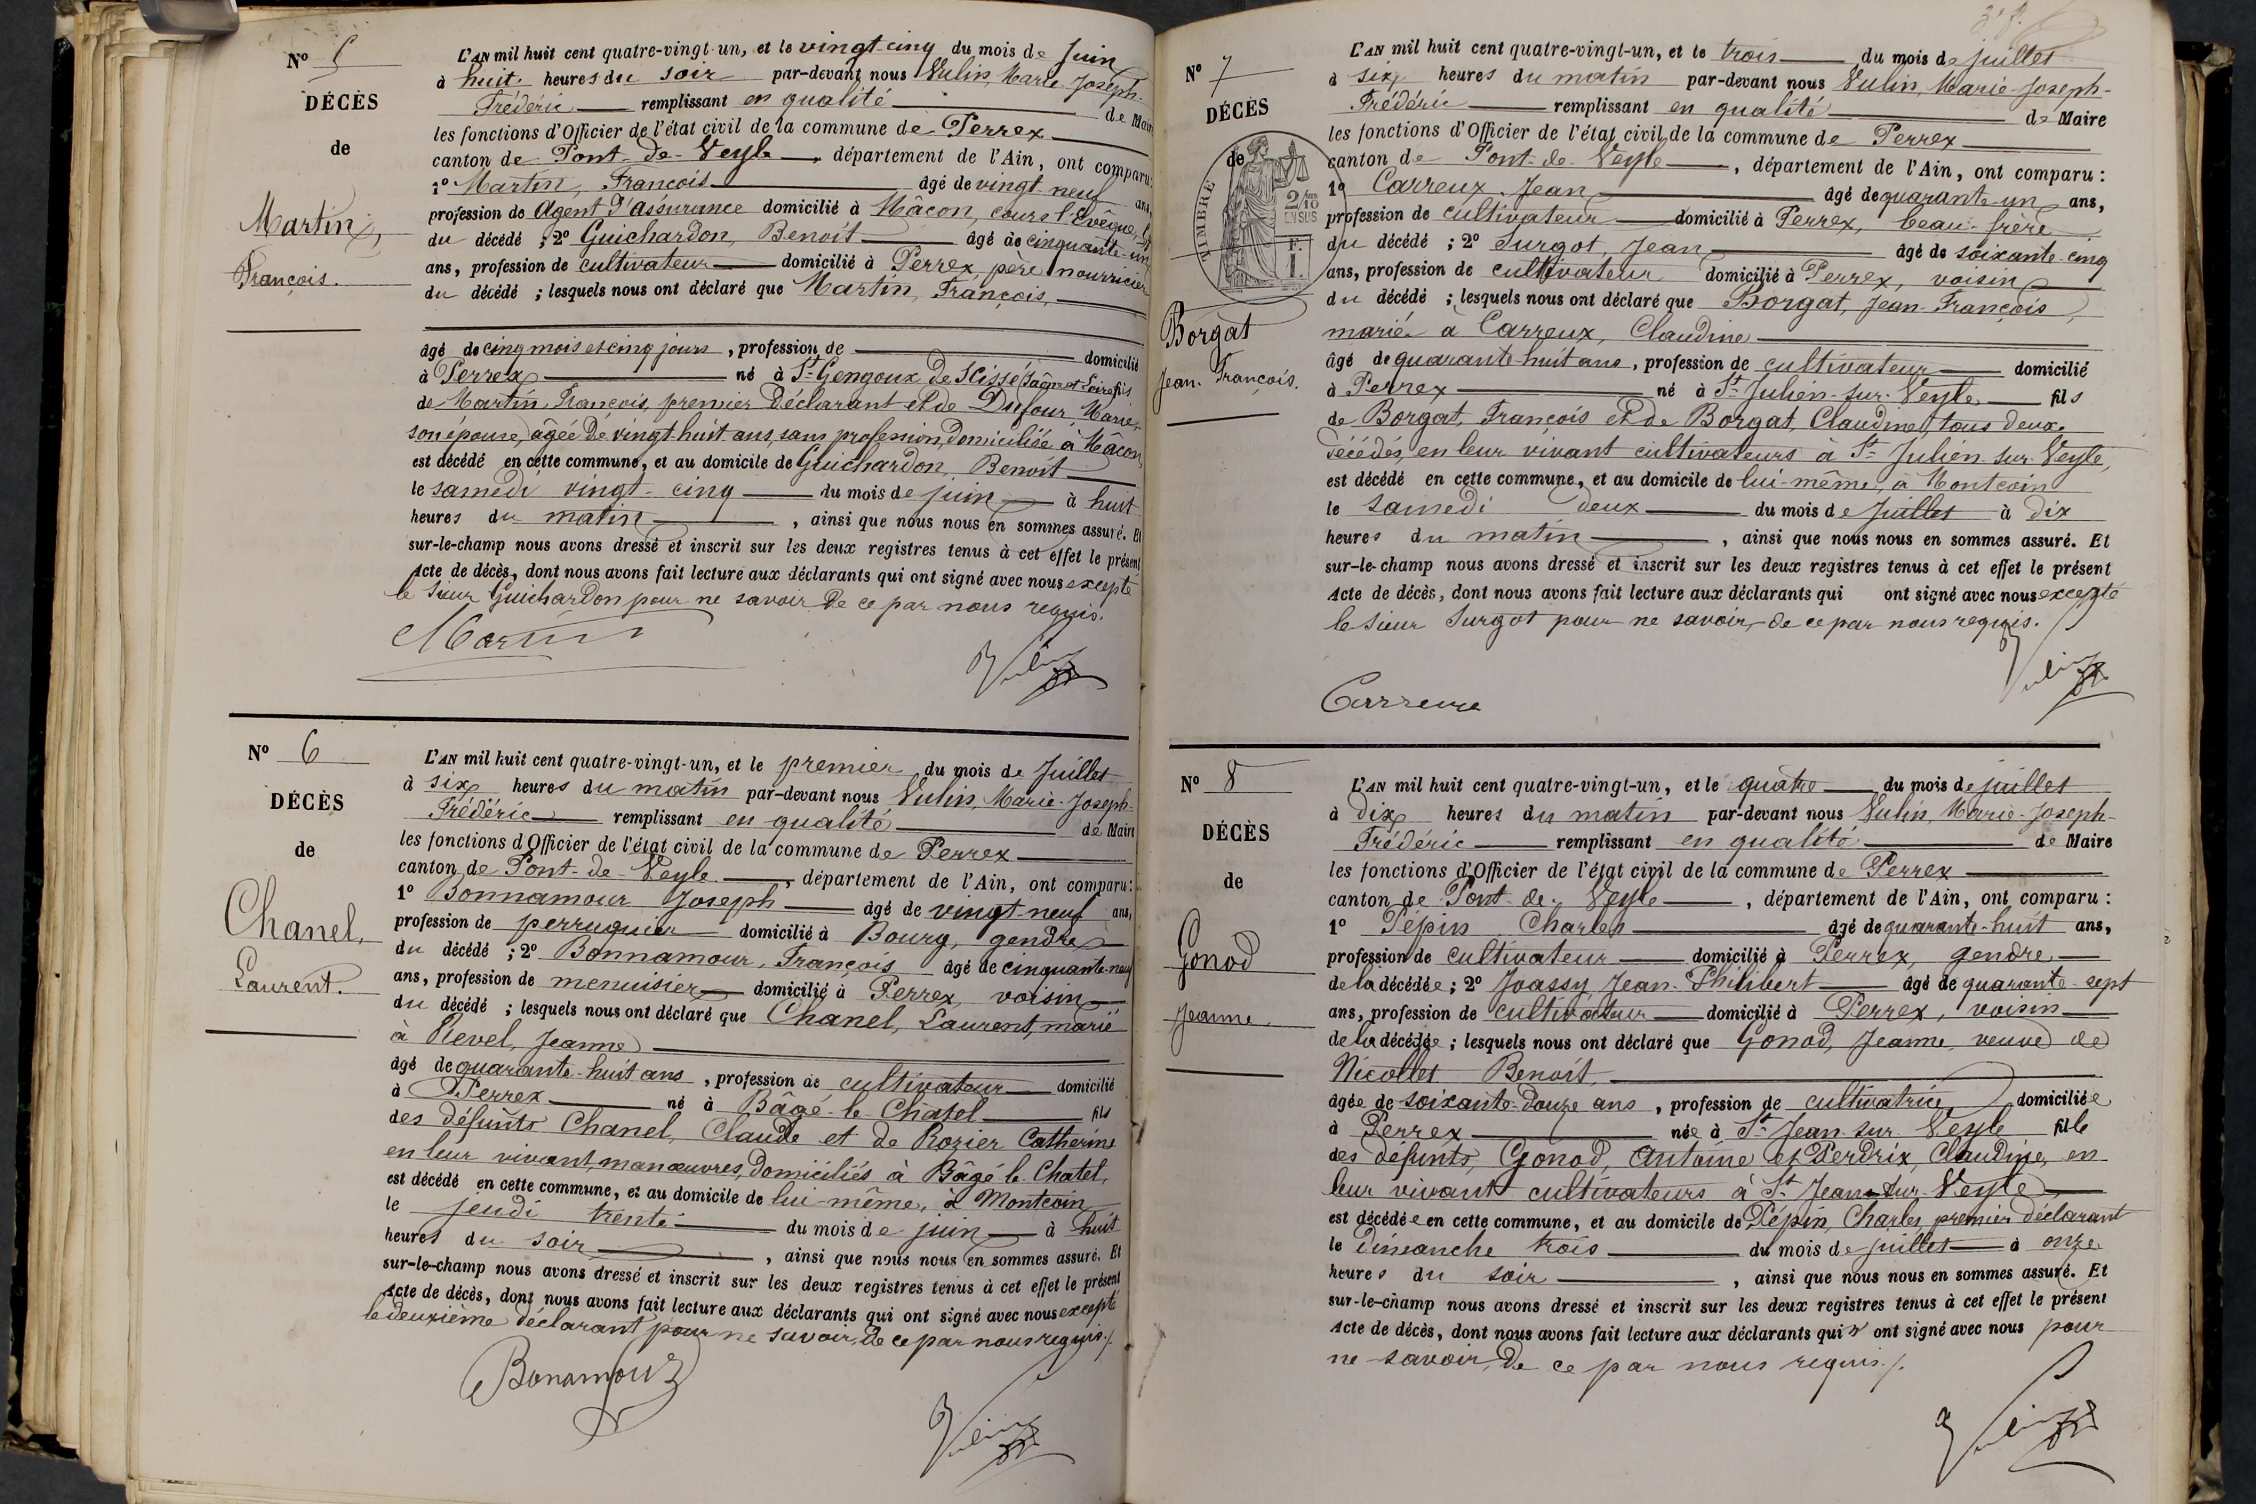 Nº 5
DÉCÈS
de
Martin,
François.
L'AN mil huit cent quatre-vingt-un, et le vingt-cinq du mois de Juin
à huit heures du soir par-devant nous Vulin, Marie-Joseph-
Frédéric remplissant en qualité de Maire
les fonctions d'Officier de l'état civil de la commune de Perrex
canton de Pont-de-Veyle, département de l'Ain, ont comparu:
1º Martin, François âgé de vingt-neuf ans,
profession de Agent d'assurance domicilié à Mâcon, cours l'Evêque,
du décédé ; 2º Guichardon, Benoît âgé de cinquante-un
ans, profession de cultivateur domicilié à Perrex, père nourricier
du décédé ; lesquels nous ont déclaré que Martin, François,
âgé de cinq mois et cinq jours, profession de domicilié
à Perrex né à St Gengoux de Scissé (Saône et Loire) fils
de Martin François, premier déclarant et de Dufour, Marie,
son épouse, âgée de vingt-huit ans, sans profession, domiciliée à Mâcon,
est décédé en cette commune, et au domicile de Guichardon Benoît
le samedi vingt-cinq du mois de juin à huit
heures du matin, ainsi que nous nous en sommes assuré. Et
sur-le-champ nous avons dressé et inscrit sur les deux registres tenus à cet effet le présent
Acte de décès, dont nous avons fait lecture aux déclarants qui ont signé avec nous excepté
le sieur Guichardon pour ne savoir de ce par nous requis.
Martin
Vulin
Nº 6
DÉCÈS
de
Chanel,
Laurent.
L'AN mil huit cent quatre-vingt-un, et le premier du mois de Juillet
à six heures du matin par-devant nous Vulin, Marie-Joseph-
Frédéric remplissant en qualité de Maire
les fonctions d'Officier de l'état civil de la commune de Perrex
canton de Pont-de-Veyle, département de l'Ain, ont comparu:
1º Bonnamour Joseph âgé de vingt-neuf ans,
profession de perruquier domicilié à Bourg, gendre
du décédé ; 2º Bonnamour, François âgé de cinquante-neuf
ans, profession de menuisier domicilié à Perrex, voisin
du décédé ; lesquels nous ont déclaré que Chanel, Laurent, marié
à Revel, Jeanne
âgé de quarante-huit ans, profession de cultivateur domicilié
à Perrex né à Bâgé-le-Châtel fils
des défunts Chanel, Claude et de Rozier Catherine
en leur vivant manœuvres, domiciliés à Bâgé-le-Chatel,
est décédé en cette commune, et au domicile de lui-même, à Montcoin
le jeudi trente du mois de juin à huit
heures du soir, ainsi que nous nous en sommes assuré. Et
sur-le-champ nous avons dressé et inscrit sur les deux registres tenus à cet effet le présent
Acte de décès, dont nous avons fait lecture aux déclarants qui ont signé avec nous excepté
le deuxième déclarant pour ne savoir, de ce par nous requis./.
Bonamour
Vulin
Nº 7
DÉCÈS
de
TIMBRE
2/10
EN SUS
F.
1.
Borgat
Jean-François.
L'AN mil huit cent quatre-vingt-un, et le trois du mois de juillet
à six heures du matin par-devant nous Vulin, Marie-Joseph-
Frédéric remplissant en qualité de Maire
les fonctions d'Officier de l'état civil de la commune de Perrex
canton de Pont-de-Veyle, département de l'Ain, ont comparu :
1º Carreux, Jean âgé de quarante-un ans,
profession de cultivateur domicilié à Perrex, beau-frère
du décédé ; 2º Surgot, Jean âgé de soixante-cinq
ans, profession de cultivateur domicilié à Perrex, voisin
du décédé ; lesquels nous ont déclaré que Borgat, Jean-François,
marié à Carreux, Claudine
âgé de quarante-huit ans, profession de cultivateur domicilié
à Perrex né à St Julien-sur-Veyle fils
de Borgat, François et de Borgat, Claudine, tous deux
décédés, en leur vivant cultivateurs à St Julien-sur-Veyle,
est décédé en cette commune, et au domicile de lui-même, à Montcoin
le samedi deux du mois de Juillet à dix
heures du matin, ainsi que nous nous en sommes assuré. Et
sur-le-champ nous avons dressé et inscrit sur les deux registres tenus à cet effet le présent
Acte de décès, dont nous avons fait lecture aux déclarants qui ont signé avec nous excepté
le sieur Surgot pour ne savoir, de ce par nous requis.
Vulin
Carreux
Nº 8
DÉCÈS
de
Gonod
Jeanne.
L'AN mil huit cent quatre-vingt-un, et le quatre du mois de juillet
à dix heures du matin par-devant nous Vulin, Marie-Joseph-
Frédéric remplissant en qualité de Maire
les fonctions d'Officier de l'état civil de la commune de Perrex
canton de Pont-de-Veyle, département de l'Ain, ont comparu :
1º Pépin, Charles âgé de quarante-huit ans,
profession de cultivateur domicilié à Perrex, gendre
de la décédée ; 2º Joassy, Jean-Philibert âgé de quarante-sept
ans, profession de cultivateur domicilié à Perrex, voisin
de la décédée ; lesquels nous ont déclaré que Gonod, Jeanne, veuve de
Nicollet Benoît,
âgée de soixante-douze ans, profession de cultivatrice, domiciliée
à Perrex née à St Jean-sur-Veyle fille
des défunts, Gonod, Antoine et Perdrix, Claudine, en
leur vivant cultivateurs à St Jean-sur-Veyle,
est décédée en cette commune, et au domicile de Pépin, Charles, premier déclarant
le dimanche trois du mois de juillet à onze
heures du soir, ainsi que nous nous en sommes assuré. Et
sur-le-champ nous avons dressé et inscrit sur les deux registres tenus à cet effet le présent
Acte de décès, dont nous avons fait lecture aux déclarants qui n'ont signé avec nous pour
ne savoir, de ce par nous requis./.
Vulin